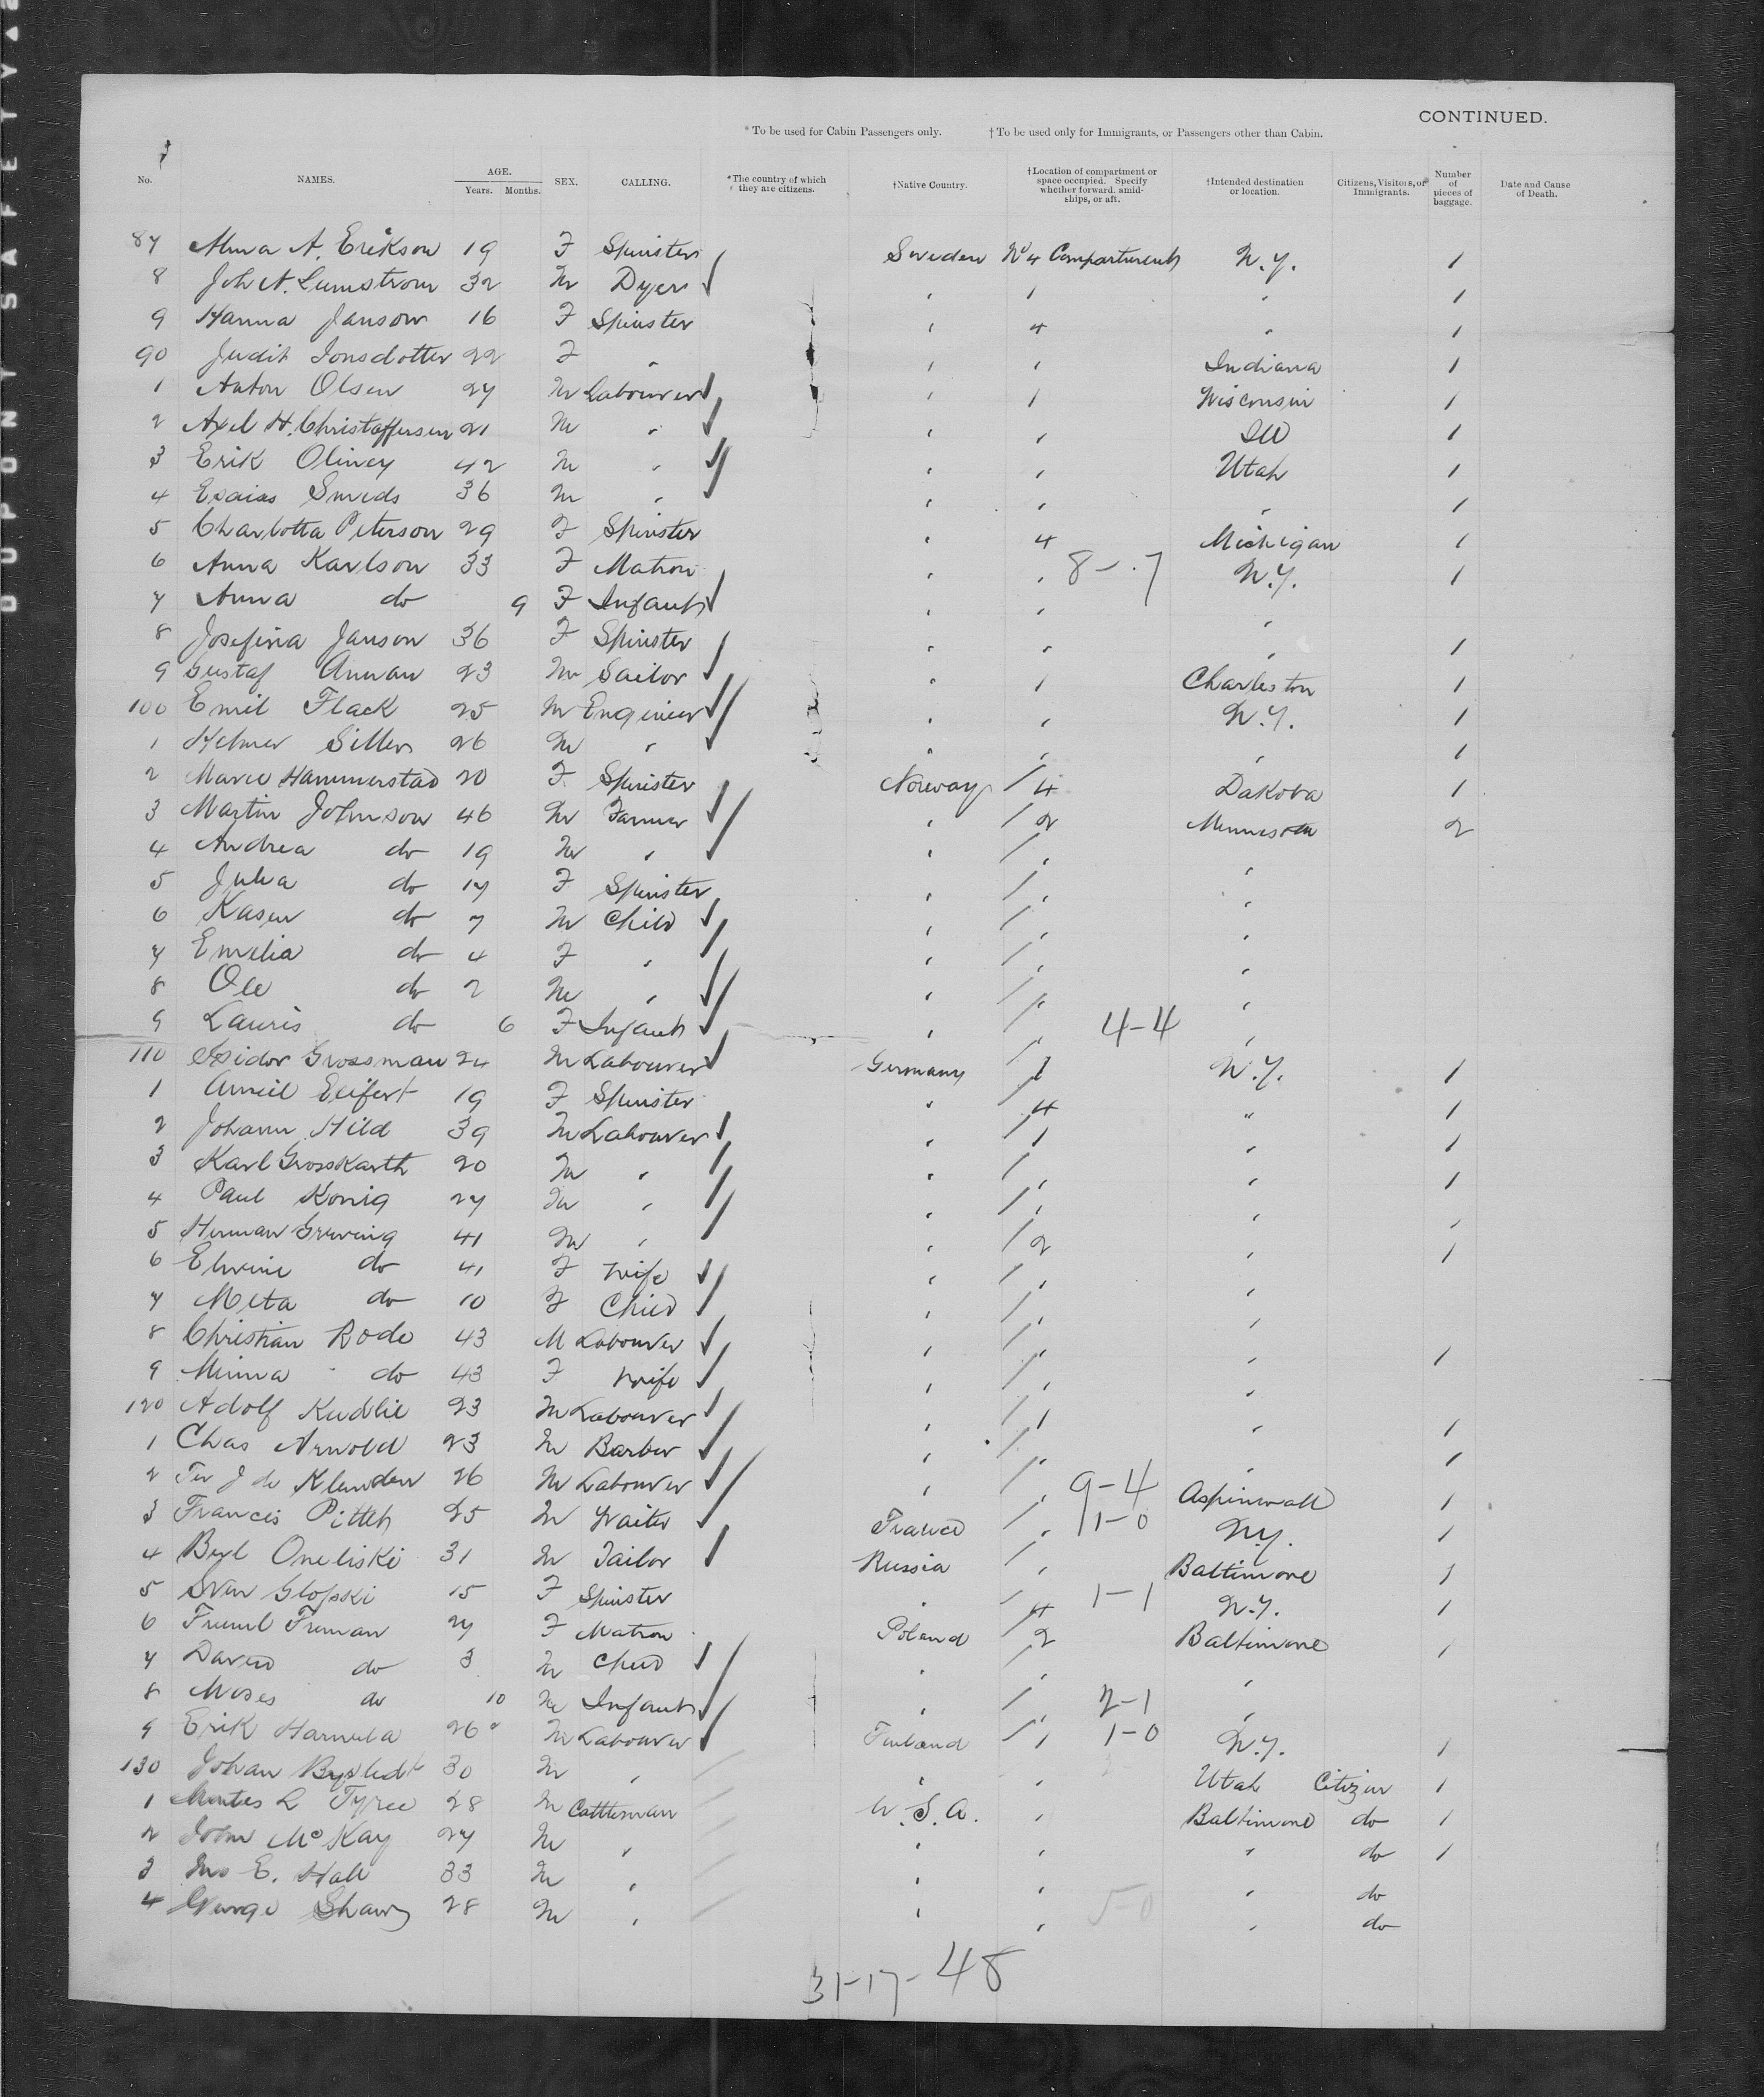 CONTINUED.
* To be used for Cabin Passengers only. † To be used only for Immigrants, or Passengers other than Cabin.
No. NAMES. AGE. Years. Months. SEX. CALLING. *The country of which they are citizens. †Native Country. †Location of compartment or space occupied. Specify whether forward, amidships, or aft. †Intended destination or location. Citizens, Visitors, or Immigrants. Number of pieces of baggage. Date and Cause of Death.
87 Alma A. Erikson 19 F Spinster Sweden No 4 Compartment N.Y. 1
8 Joh A. Lumstrom 32 M Dyer " 1 " 1
9 Hanna Janson 16 F Spinster " 4 " 1
90 Judit Jonsdotter 22 F " " " Indiana 1
1 Anton Olsen 27 M Labourer " 1 Wisconsin 1
2 Axel H. Christaffersen 21 M " " " Ill 1
3 Erik Olincy 42 M " " " Utah 1
4 Esaias Smeds 36 M " " " " 1
5 Charlotta Peterson 29 F Spinster " 4 Michigan 1
6 Anna Karlson 33 F Matron " " 8-7 N.Y. 1
7 Anna do 9 F Infant " " "
8 Josefina Janson 36 F Spinster " " " 1
9 Gustaf Annan 23 M Sailor " 1 Charleston 1
100 Emil Flack 25 M Engineer " " N.Y. 1
1 Helmer Siller 26 M " " " " 1
2 Marie Hammerstad 20 F Spinster Norway 4 Dakota 1
3 Martin Johnson 46 M Farmer " 2 Minnesota 2
4 Andrea do 19 M " " " "
5 Julia do 17 F Spinster " " "
6 Kasen do 7 M Child " " "
7 Emelia do 4 F " " " "
8 Ole do 2 M " " " "
9 Lauris do 6 F Infant " " 4-4 "
110 Isidor Grossman 24 M Labourer Germany 1 N.Y. 1
1 Seifert 19 F Spinster " 4 " 1
2 Johann Hild 39 M Labourer " 1 " 1
3 Karl Grosskarth 20 M " " " " 1
4 Paul Konig 27 M " " " " 1
5 Herman Greving 41 M " " 2 " 1
6 Elwine do 41 F Wife " " "
7 Meta do 10 F Child " " "
8 Christian Rode 43 M Labourer " " " 1
9 Minna do 43 F Wife " " "
120 Adolf Kudlie 23 M Labourer " 1 " 1
1 Chas Arnold 23 M Barber " " " 1
2 26 M Labourer " " 9-4 Aspinwall 1
3 Francis Pitteh 25 M Waiter France " 1-0 N.Y. 1
4 Beyl Oneliski 31 M Tailor Russia " Baltimore 1
5 15 F Spinster " 4 1-1 N.Y. 1
6 Freman 27 F Matron Poland 2 Baltimore 1
7 David do 3 M Child " " "
8 Moses do 10 M Infant " " 2-1 "
9 Erik Harnula 26 M Labourer Finland 1 1-0 N.Y. 1
130 Johan 30 M " " " Utah Citizen 1
1 L Tyree 28 M Cattleman U.S.A. " Baltimore do 1
2 John McKay 27 M " " " " do 1
3 Jno E. Hall 33 M " " " " do
4 George Shaw 28 M " " " 5-0 " do
31-17-48